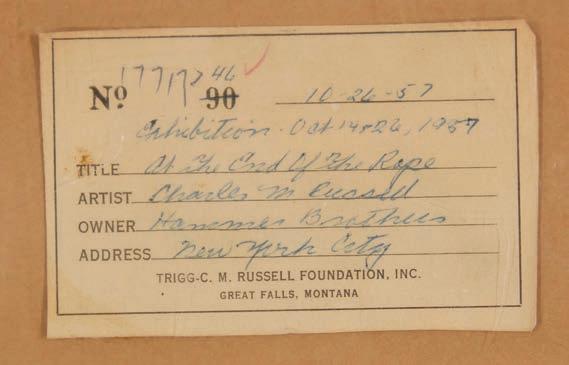 No 46 90 10-26-57
Exhibition. Oct 14 & 26, 1957
TITLE At The End Of The Rope
ARTIST Charles M Russell
OWNER Hammer Brothers
ADDRESS New York City
TRIGG-C. M. RUSSELL FOUNDATION, INC.
GREAT FALLS, MONTANA